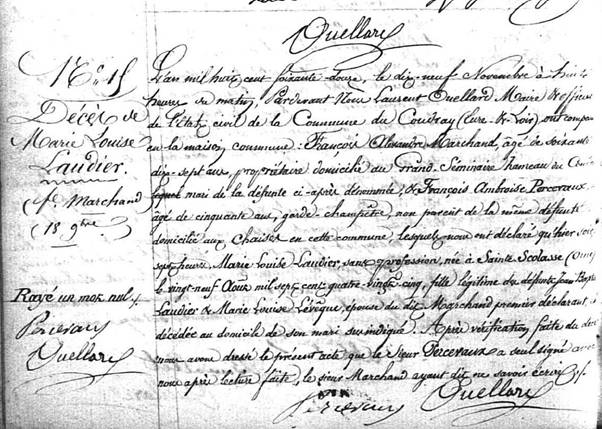 Ouellard
N° 15
Décès de
Marie Louise
Laudier.
fe Marchand
18 9bre
Rayé un mot nul
Percevaux
Ouellard
L'an mil huit cent soixante-douze, le dix-neuf Novembre à huit
heures du matin, Pardevant Nous Laurent Ouellard Maire & officier
de l'état civil de la Commune du Coudray (Eure & Loir), ont comparu
en la maison commune : François Alexandre Marchand, âgé de soixante
dix-sept ans, propriétaire domicilié au Grand-Séminaire hameau du
mari de la défunte ci-après dénommée, & François Ambroise Percevaux
âgé de cinquante ans, garde-champêtre, non parent de la même défunte
domicilié aux Chaises en cette commune, lesquels nous ont déclaré qu'hier soir
sept heures Marie Louise Laudier, sans profession, née à Sainte Scolasse (Orne)
le vingt-neuf Août mil sept cent quatre-vingt-cinq, fille légitime des défunts Jean Bapte
Laudier & Marie Louise Levêque, épouse du dit Marchand premier déclarant, est
décédée au domicile de son mari sus-indiqué. Après vérification faite du décès
nous avons dressé le présent acte que le sieur Percevaux a seul signé avec
nous après lecture faite, le sieur Marchand ayant dit ne savoir écrire
Percevaux Ouellard